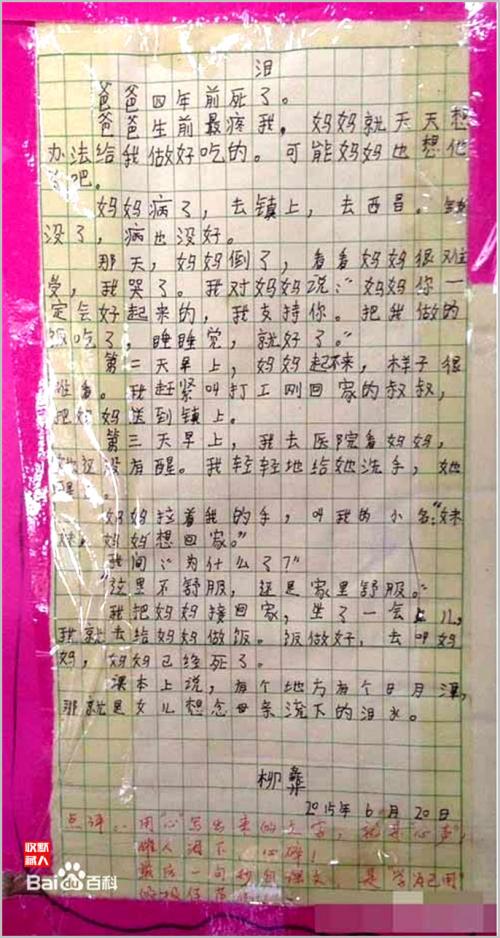 泪
爸爸四年前死了。
爸爸生前最疼我，妈妈就天天想
办法给我做好吃的。可能妈妈也想他
吧。
妈妈病了，去镇上，去西昌。钱
没了，病也没好。
那天，妈妈倒了，看看妈妈很难
受，我哭了。我对妈妈说：“妈妈你一
定会好起来的，我支持你。把我做的
饭吃了，睡睡觉，就好了。”
第二天早上，妈妈起不来，样子很
难看。我赶紧叫打工刚回家的叔叔，
把妈妈送到镇上。
第三天早上，我去医院看妈妈，
她还没有醒。我轻轻地给她洗手，她
醒
妈妈拉着我的手，叫我的小名：“妹
妹，妈妈想回家。”
我问：“为什么了？”
“这里不舒服，还是家里舒服。”
我把妈妈接回家，坐了一会儿，
我就去给妈妈做饭。饭做好，去叫妈
妈，妈妈已经死了。
课本上说，有个地方有个日月潭，
那就是女儿想念母亲流下的泪水。
柳彝
2015年6月20日
点评：用“心”写出来的文字，就是“心声”，
催人泪下，心碎！
最后一句抄自课文，是“学为己用”
的
默收
人藏
Bai du 百科